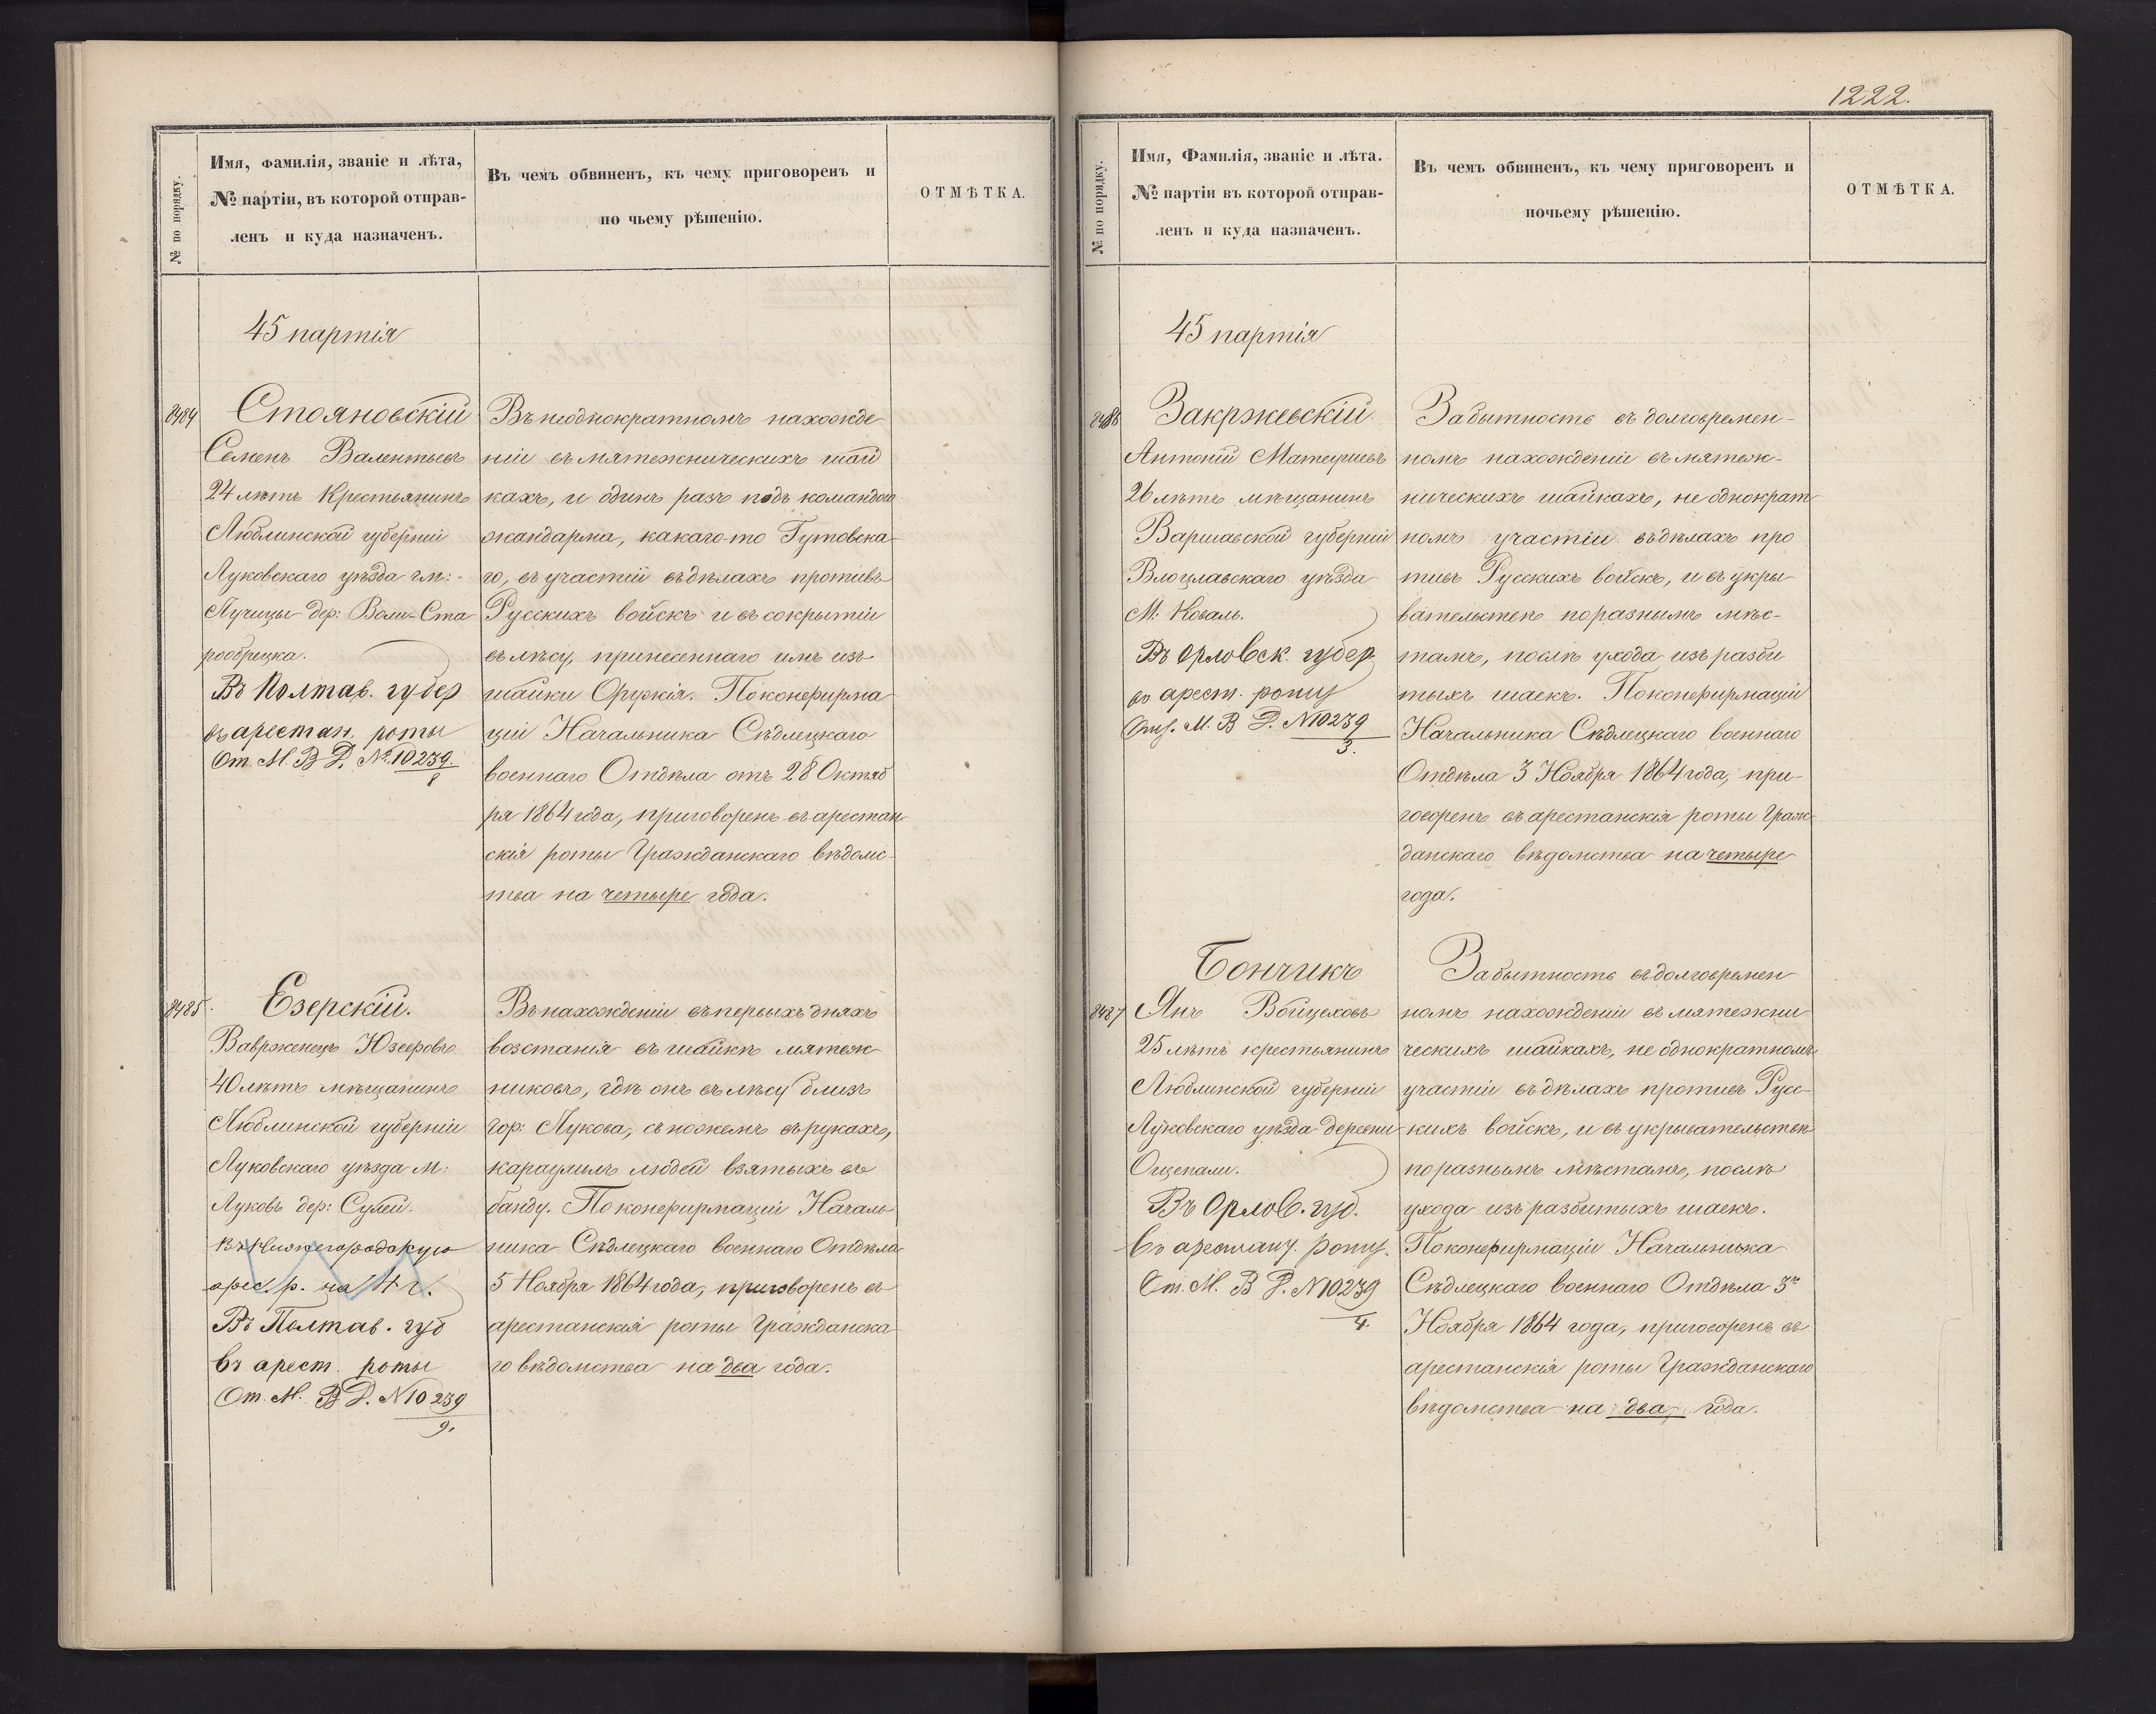 № по порядку.
Имя, фамилія, званіе и лѣта,
№ партіи, въ которой отправ-
ленъ и куда назначенъ.
Въ чемъ обвиненъ, къ чему приговоренъ и
по чьему рѣшенію.
ОТМѢТКА.
45 партія
8484
Стояновскій
Семенъ Валентьевъ
24 лѣтъ Крестьянинъ
Люблинской губерніи
Луковскаго уѣзда гм:
Лучицы дер: Воли-Ста
рообрецка.
Въ Полтав. губер
въ арестан. роты
От. М. В Д. №10239.
8
Въ неоднократномъ нахожде
ніи въ мятежническихъ шай
кахъ, и одинъ разъ подъ командою
жандарма, какаго-то Гутовска-
го, въ участіи въ дѣлахъ противъ
Русскихъ войскъ и въ сокрытіи
въ лѣсу, принесеннаго имъ изъ
шайки Оружія. По конфирма
ціи Начальника Сѣдлецкаго
военнаго Отдѣла отъ 28 Октяб
ря 1864 года, приговоренъ въ арестан
скія роты Гражданскаго вѣдомс-
тва на четыре года.
8485.
Езерскій.
Ваврженецъ Юзефовъ
40 лѣтъ мѣщанинъ
Люблинской губерніи
Луковскаго уѣзда М:
Луковъ дер: Сулей.
Въ Нижегородскую
арес. р. на 4 г.
Въ Полтав. губ
въ арест. роты
От. М. В Д. №10239
9.
Въ нахожденіи въ первыхъ дняхъ
возстанія въ шайкѣ мятеж
никовъ, гдѣ онъ въ лѣсу близъ
гор: Лукова, съ ножемъ въ рукахъ,
караулилъ людей взятыхъ въ
банду. По конфирмаціи Началь
ника Сѣдлецкаго военнаго Отдѣла
5 Ноября 1864 года, приговоренъ въ
арестанскія роты Гражданска
го вѣдомства на два года.
1222.
№ по порядку.
Имя, Фамилія, званіе и лѣта.
№ партіи въ которой отправ-
ленъ и куда назначенъ.
Въ чемъ обвиненъ, къ чему приговоренъ и
почьему рѣшенію.
ОТМѢТКА.
45 партія
8486
Закржевскій
Антоній Матеушевъ
26 лѣтъ мѣщанинъ
Варшавской губерніи
Влоцлавскаго уѣзда
М: Коваль.
Въ Орловск. губер
въ арест. роту
От. М. В Д. №10239
3.
За бытность въ долговремен-
номъ нахожденіи въ мятеж-
ническихъ шайкахъ, не однократ
номъ участіи въ дѣлахъ про
тивъ Русскихъ войскъ, и въ укры-
вательствѣ по разнымъ мѣс-
тамъ, послѣ ухода изъ разби
тыхъ шаекъ. По конфирмаціи
Начальника Сѣдлецкаго военнаго
Отдѣла 3 Ноября 1864 года, при-
говоренъ въ арестанскія роты Граж-
данскаго вѣдомства на четыре
года.
8487
Бончикъ
Янъ Войцеховъ
25 лѣтъ крестьянинъ
Люблинской губерніи
Луковскаго уѣзда деревни
Ощепали.
Въ Орлов. губ.
въ арестант. роту.
От. М. В Д. №10239
4.
За бытность въ долговремен
номъ нахожденіи въ мятежни
ческихъ шайкахъ, не однократномъ
участіи въ дѣлахъ противъ Русс-
кихъ войскъ, и въ укрывательствѣ
по разнымъ мѣстамъ, послѣ
ухода изъ разбитыхъ шаекъ.
По конфирмаціи Начальника
Сѣдлецкаго военнаго Отдѣла 3го
Ноября 1864 года, приговоренъ въ
арестанскія роты Гражданскаго
вѣдомства на два года.